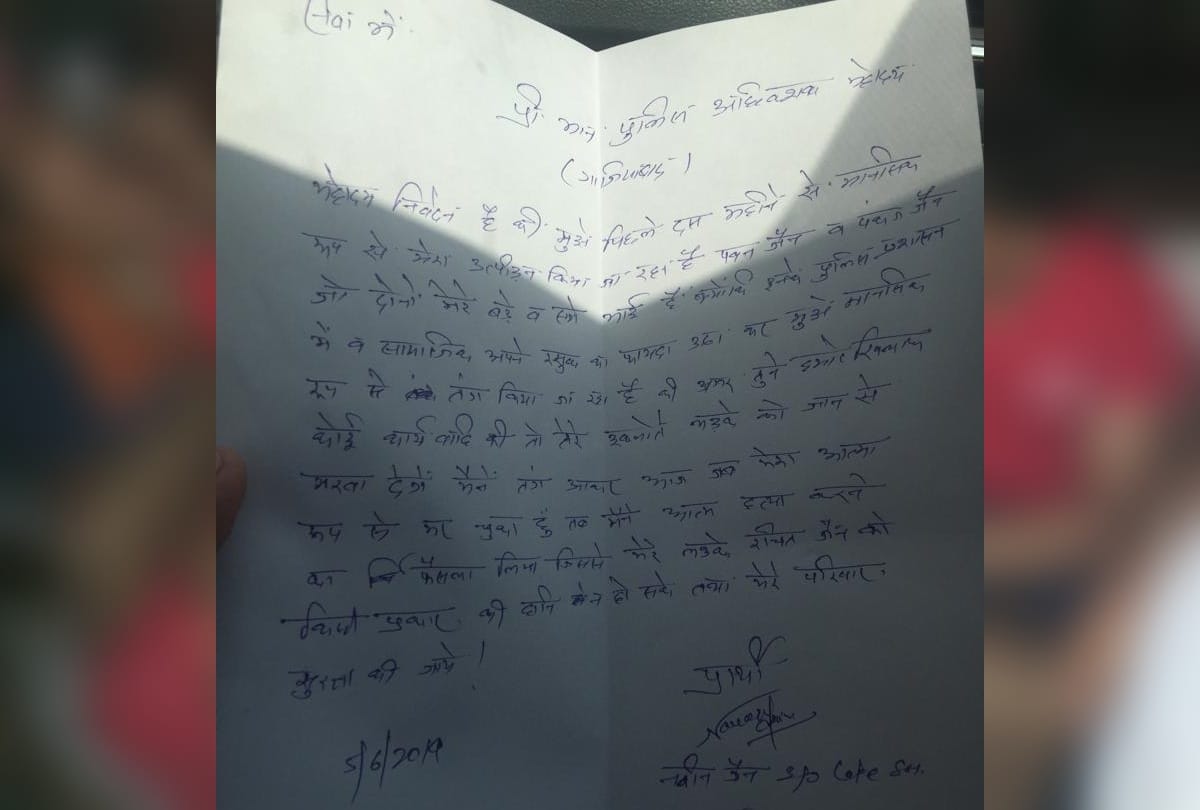 में
पुलिस महोदय
(गाजियाबाद)
महोदय निवेदन है की मुझे पिछले दस महीने से मानसिक
रूप से मेरा उत्पीड़न किया जा रहा है पवन जैन व पंकज जैन
जो दोनों मेरे बड़े व सगे भाई है क्योंकि इनके पुलिस प्रशासन
में व सामाजिक अपने रसुख का फायदा उठा कर मुझे मानसिक
रूप से तंग किया जा रहा है की अगर तुने हमारे खिलाफ
कोई कार्यवाहि की तो तेरे इकलोते लड़के को जान से
मरवा देगें मैनें तंग आकर आज जब मेरा आत्मा
रूप से मर चुका हुं तब मैंने आत्म हत्या करने
का फैसला लिया जिससे मेरे लडके जैन को
किसी प्रकार की हानि न हो सके तथा मेरे परिवार
सुरक्षा की जाये !
प्रार्थी
5/6/2019
नवीन जैन S/o Late